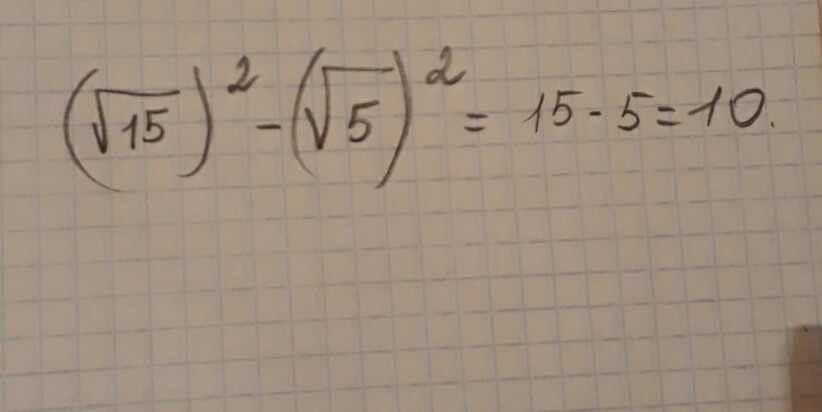 (√15)² - (√5)² = 15 - 5 = 10.